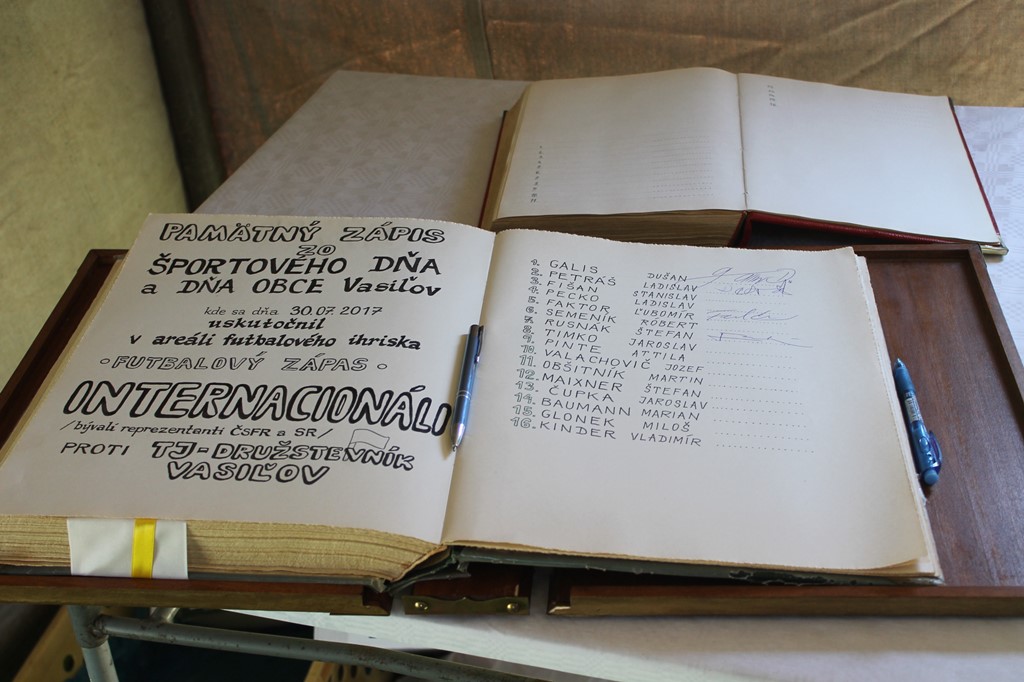 PAMÄTNÝ ZÁPIS
ZO
ŠPORTOVÉHO DŇA
a DŇA OBCE Vasiľov
kde sa dňa 30.07.2017
uskutočnil
v areáli futbalového ihriska
◦FUTBALOVÝ ZÁPAS◦
INTERNACIONÁLI
/bývalí reprezentanti ČSFR a SR/
PROTI TJ-DRUŽSTEVNÍK
VASIĽOV
1. GALIS DUŠAN
2. PETRÁŠ LADISLAV
3. FIŠAN STANISLAV
4. PECKO LADISLAV
5. FAKTOR ĽUBOMÍR
6. SEMENÍK RÓBERT
7. RUSNÁK ŠTEFAN
8. TIMKO JAROSLAV
9. PINTE ATTILA
10. VALACHOVIČ JOZEF
11. OBŠITNÍK MARTIN
12. MAIXNER ŠTEFAN
13. ČUPKA JAROSLAV
14. BAUMANN MARIAN
15. GLONEK MILOŠ
16. KINDER VLADIMÍR